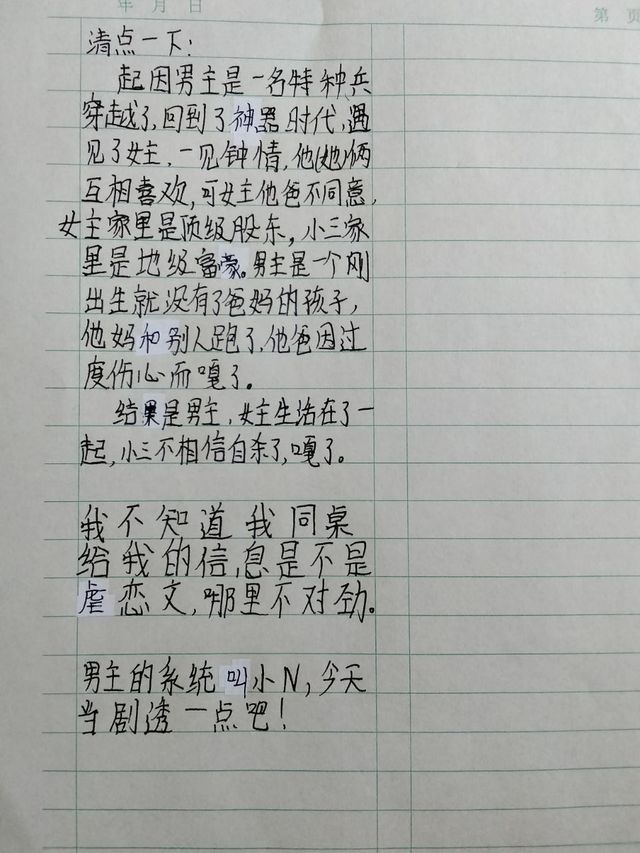 年 月 日
第 页
清点一下:
起因男主是一名特种兵
穿越了,回到了神器时代,遇
见了女主,一见钟情,他(她)俩
互相喜欢,可女主他爸不同意,
女主家里是顶级股东,小三家
里是地级富豪。男主是一个刚
出生就没有了爸妈的孩子,
他妈和别人跑了,他爸因过
度伤心而嘎了。
结果是男主,女主生活在了一
起,小三不相信自杀了,嘎了。
我不知道我同桌
给我的信息是不是
虐恋文,哪里不对劲。
男主的系统叫小N,今天
当剧透一点吧!